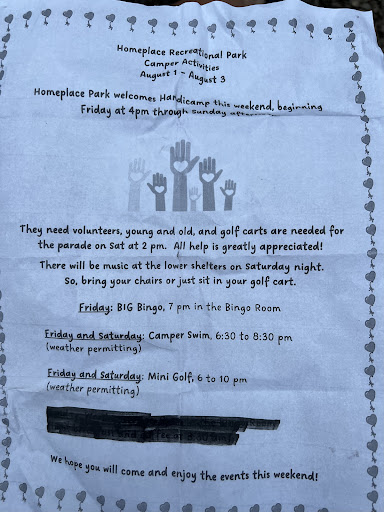 Homeplace Recreational Park
Camper Activities
August 1 – August 3
Homeplace Park welcomes Handicamp this weekend, beginning
Friday at 4pm through Sunday
They need volunteers, young and old, and golf carts are needed for
the parade on Sat at 2 pm. All help is greatly appreciated!
There will be music at the lower shelters on Saturday night.
So, bring your chairs or just sit in your golf cart.
Friday: BIG Bingo, 7 pm in the Bingo Room
Friday and Saturday: Camper Swim, 6:30 to 8:30 pm
(weather permitting)
Friday and Saturday: Mini Golf, 6 to 10 pm
(weather permitting)
We hope you will come and enjoy the events this weekend!